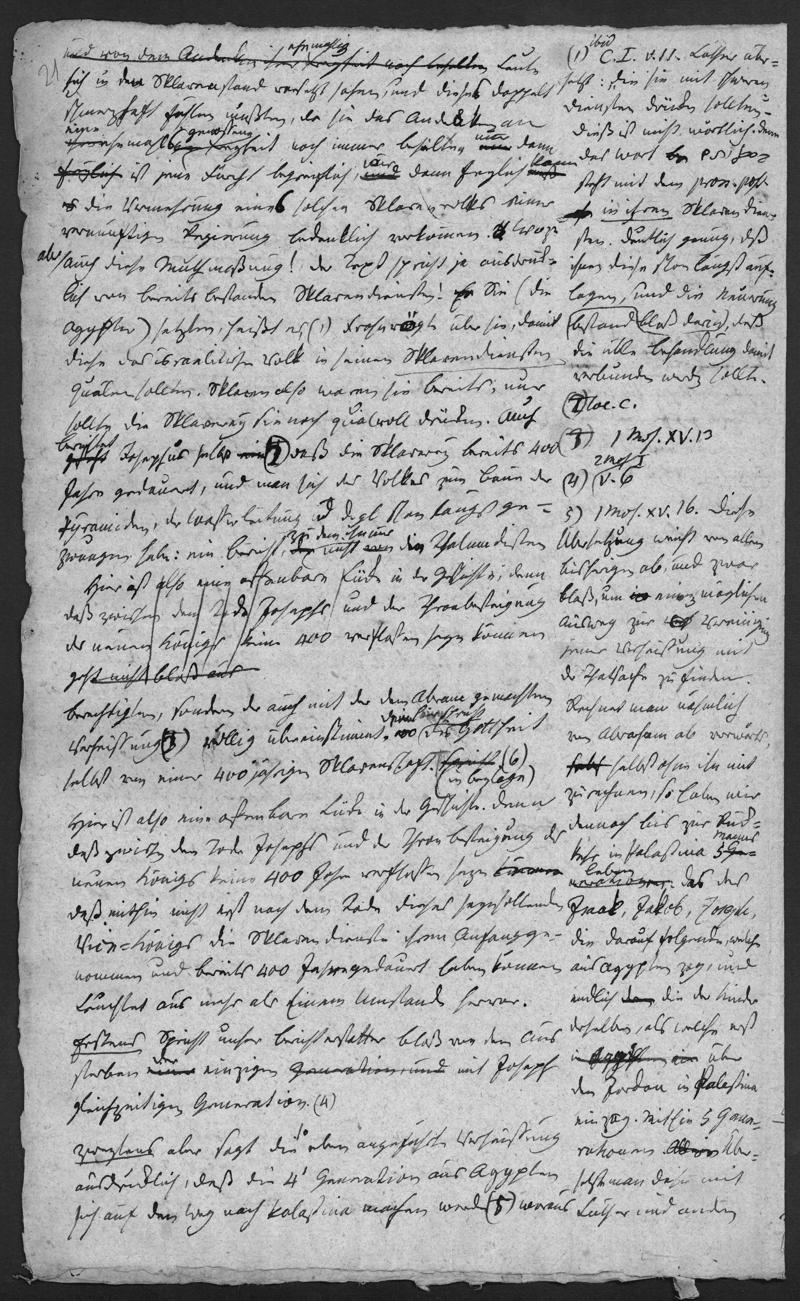 21
und von dem Andenken ihrer ehmalig Freyheit noch beseelten Leute
sich in den Sklavenstand versetzt sahen, und dieses doppelt
schmerzhaft fühlen mußten, da sie das Andenken an
eine ehmals genossene Freyheit noch immer behielten, nur dann
ist jene Furcht begreiflich, und dann freylich kann
die Vermehrung eines solchen Sklavenvolks einer
vernünftigen Regierung bedenklich vorkommen. Wozu
aber auch diese Muthmaßung! der Text spricht ja ausdrück-
lich von bereits bestanden Sklavendiensten! Sie (die
Agypter) setzten, heißt es (1) Frohnvögte über sie, damit
diese das israelitische Volk in seinen Sklavendiensten
quälen sollten. Sklaven also waren sie bereits, nur
sollte die Sklaverey sie noch qualvoll drücken. Auch
berichtet Josephus selbst (2) daß die Sklaverey bereits 400
Jahre gedauert, und man sich des Volkes zum Baue der
Pyramiden, der Wasserleitung u. d. gl. schon längst ge-
zwungen habe: ein Bericht, zu dem immer nicht die Thalmudisten
Hier ist also eine offenbare Lücke in der Geschichte; denn
daß zwischen dem Tode Josephs und der Thronbesteigung
des neuen Königs keine 400 verflossen seyn können
geht nicht bloß aus
berechtigten, sondern der auch mit der dem Abram gemachten
Verheissung (3) völlig übereinstimmt. die Gottheit
selbst von einer 400 jährigen Sklavenschaft. (6)
(in beylage)
Hier ist also eine offenbare Lücke in der Geschichte. denn
daß zwischen dem Tode Josephs und der Thronbesteigung des
neuen Königs keine 400 Jahre verflossen seyn können
daß mithin nicht erst nach dem Tode dieses seynsollenden
Vice-Königs die Sklavendienste ihren Anfang ge-
nommen und bereits 400 Jahre gedauert haben können
leuchtet aus mehr als Einem Umstande hervor.
Erstens spricht unser Berichterstatter bloß von dem Aus
sterben der einzigen Generation, und mit Joseph
gleichzeitigen Generation. (4)
Zweytens aber sagt die so eben angeführte Verheissung
ausdrücklich, daß die 4t Generation aus Agypten
sich auf den Weg nach Palästina machen werde (5) woraus
(1) ibid C. I. v. 11. Luther über-
setzt: die sie mit schweren
Diensten drücken sollten,
dieß ist nicht wörtlich. denn
das Wort
steht mit dem pron. poss.
in ihren Sklavendien-
sten. Deutlich genug, daß
ihnen diese schon längst auf-
lagen, und die Neuerung
bestand bloß darin, daß
die üble Behandlung damit
verbunden werden sollte.
(2) loc. c.
(3) 1 Mos. XV. 13
(4) 2 Mos I v. 6
5) 1 Mos. XV. 16. Diese
Übersetzung weicht von allen
bisherigen ab, und zwar
bloß, um einen möglichen
Ausweg zur Vereinigung
jener Verheissung mit
der Thatsache zu finden.
Rechnet man nähmlich
von Abraham ab vorwärts,
selbst ohne ihn mit
zu rechnen, so haben wir
dennoch bis zur Rück-
kehr in Palästina
das des
Isaak, Jakob, Joseph,
die darauf folgende, welche
aus Agypten zog, und
endlich die der Kinder
derselben, als welche erst
über
den Jordan in Palästina
einzog. Mithin 5 Gene-
rationen. Über-
setzt man daher mit
Luther und andern